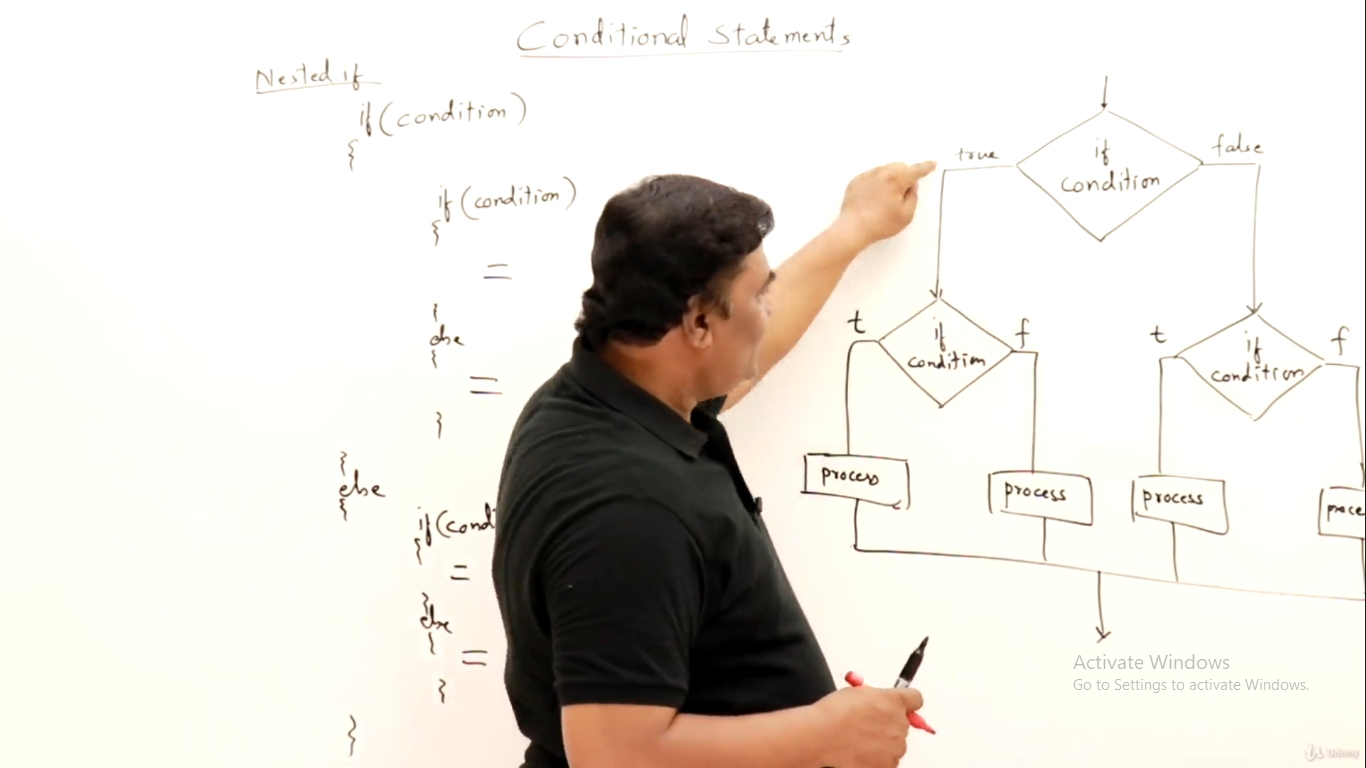 Conditional Statements
Nested if
if (condition)
{
if (condition)
{
=
}
else
{
=
}
}
else
{
if (cond
{
=
}
else
{
=
}
}
if
condition
true
false
if
condition
t
f
if
condition
t
f
process
process
process
proce
Activate Windows
Go to Settings to activate Windows.
Udemy